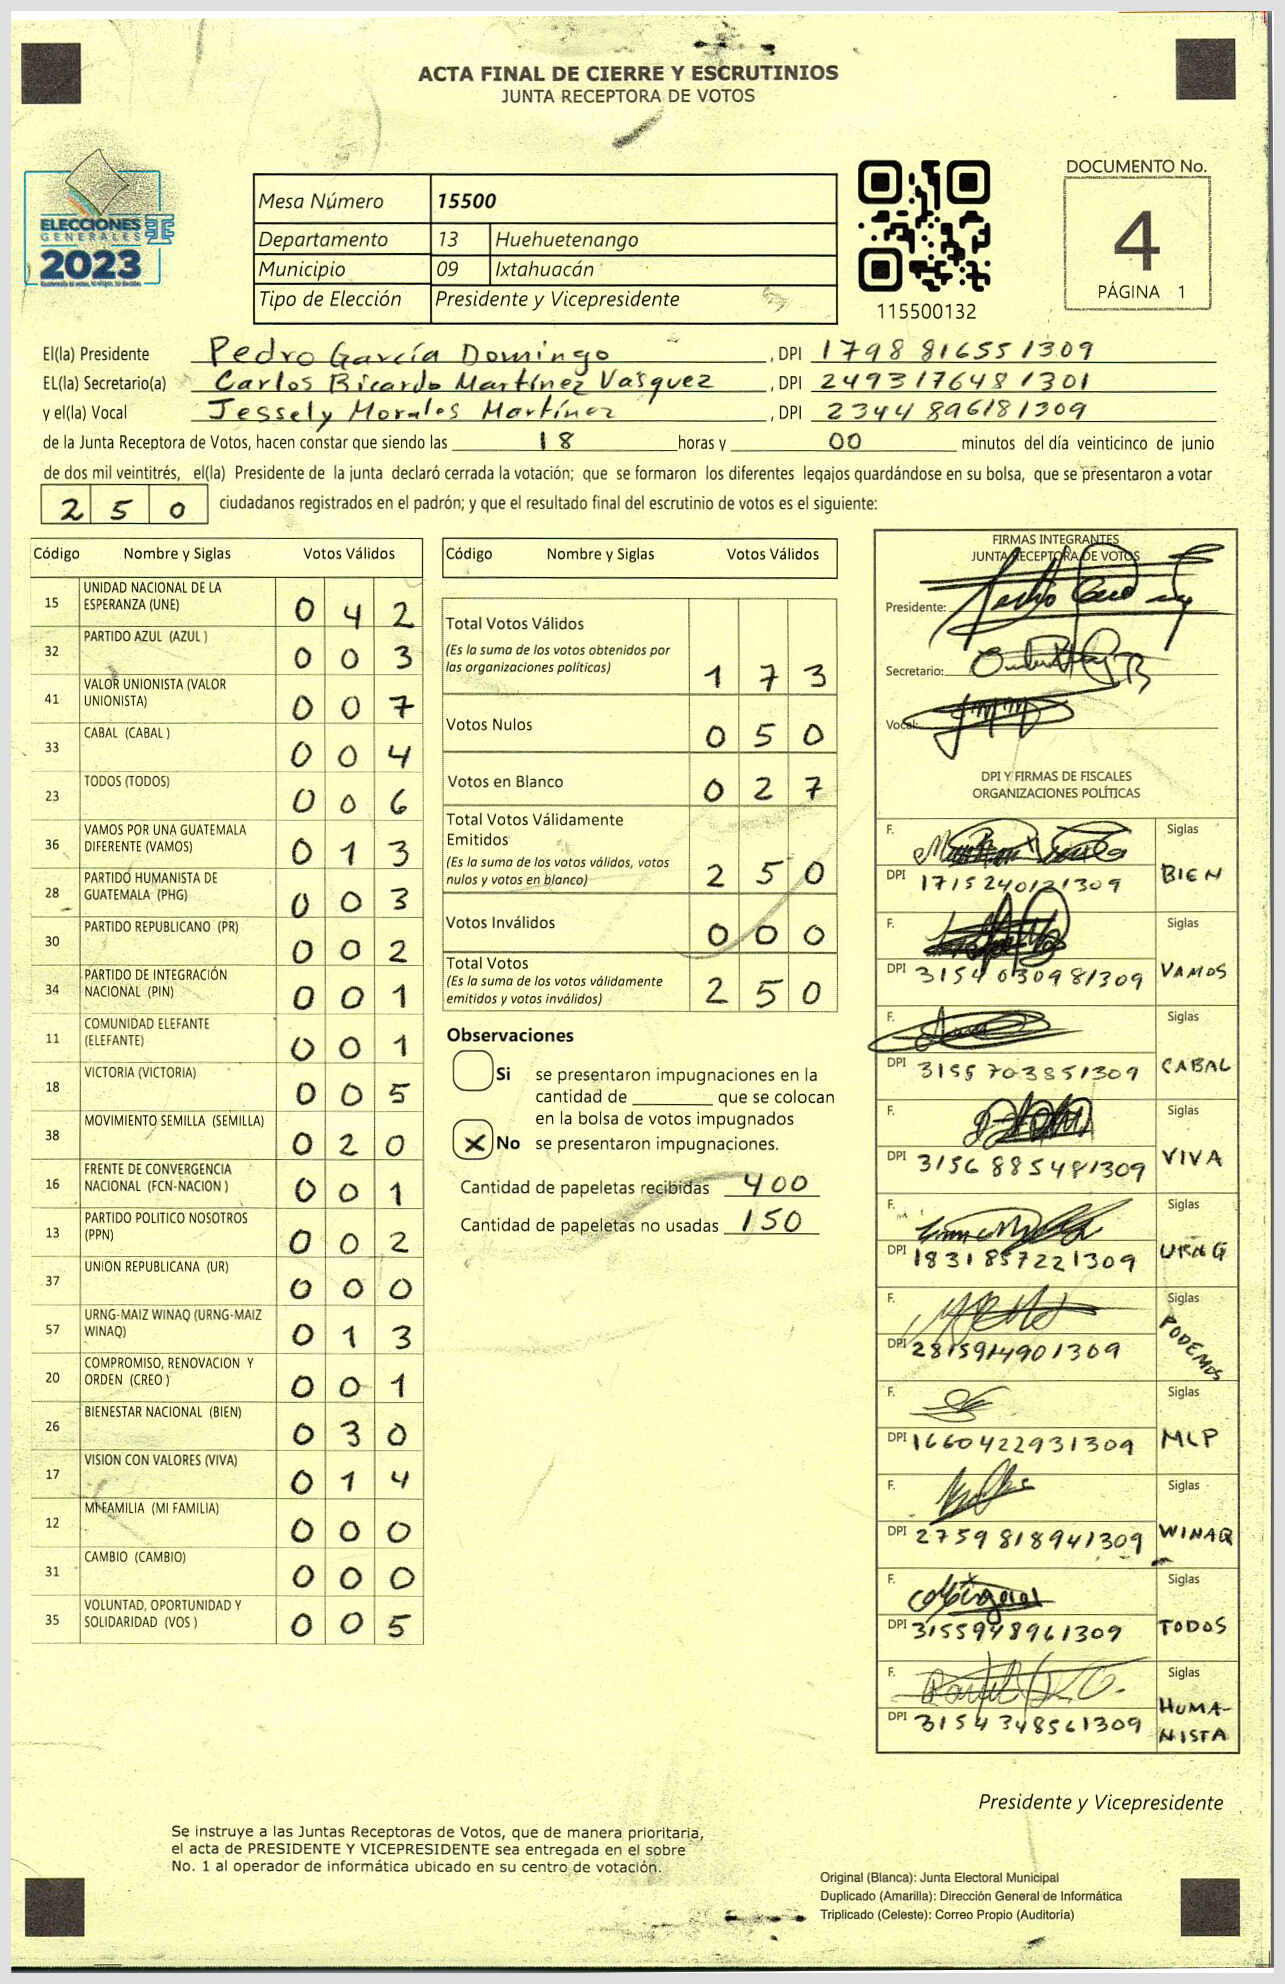 ACTA FINAL DE CIERRE Y ESCRUTINIOS
JUNTA RECEPTORA DE VOTOS
ELECCIONES
GENERALES
2023
Mesa Número 15500
Departamento 13 Huehuetenango
Municipio 09 Ixtahuacán
Tipo de Elección Presidente y Vicepresidente
115500132
DOCUMENTO No.
4
PÁGINA 1
El(la) Presidente Pedro García Domingo, DPI 1798 81655 1309
EL(la) Secretario(a) Carlos Ricardo Martínez Vasquez, DPI 2493 17648 1301
y el(la) Vocal Jessely Morales Martínez, DPI 2344 89618 1309
de la Junta Receptora de Votos, hacen constar que siendo las 18 horas y 00 minutos del día veinticinco de junio
de dos mil veintitrés, el(la) Presidente de la junta declaró cerrada la votación; que se formaron los diferentes legajos guardándose en su bolsa, que se presentaron a votar
250 ciudadanos registrados en el padrón; y que el resultado final del escrutinio de votos es el siguiente:
Código Nombre y Siglas Votos Válidos
15 UNIDAD NACIONAL DE LA ESPERANZA (UNE) 0 4 2
32 PARTIDO AZUL (AZUL ) 0 0 3
41 VALOR UNIONISTA (VALOR UNIONISTA) 0 0 7
33 CABAL (CABAL ) 0 0 4
23 TODOS (TODOS) 0 0 6
36 VAMOS POR UNA GUATEMALA DIFERENTE (VAMOS) 0 1 3
28 PARTIDO HUMANISTA DE GUATEMALA (PHG) 0 0 3
30 PARTIDO REPUBLICANO (PR) 0 0 2
34 PARTIDO DE INTEGRACIÓN NACIONAL (PIN) 0 0 1
11 COMUNIDAD ELEFANTE (ELEFANTE) 0 0 1
18 VICTORIA (VICTORIA) 0 0 5
38 MOVIMIENTO SEMILLA (SEMILLA) 0 2 0
16 FRENTE DE CONVERGENCIA NACIONAL (FCN-NACION ) 0 0 1
13 PARTIDO POLITICO NOSOTROS (PPN) 0 0 2
37 UNION REPUBLICANA (UR) 0 0 0
57 URNG-MAIZ WINAQ (URNG-MAIZ WINAQ) 0 1 3
20 COMPROMISO, RENOVACION Y ORDEN (CREO ) 0 0 1
26 BIENESTAR NACIONAL (BIEN) 0 3 0
17 VISION CON VALORES (VIVA) 0 1 4
12 MI FAMILIA (MI FAMILIA) 0 0 0
31 CAMBIO (CAMBIO) 0 0 0
35 VOLUNTAD, OPORTUNIDAD Y SOLIDARIDAD (VOS ) 0 0 5
Código Nombre y Siglas Votos Válidos
Total Votos Válidos
(Es la suma de los votos obtenidos por
las organizaciones políticas) 1 7 3
Votos Nulos 0 5 0
Votos en Blanco 0 2 7
Total Votos Válidamente
Emitidos
(Es la suma de los votos válidos, votos
nulos y votos en blanco) 2 5 0
Votos Inválidos 0 0 0
Total Votos
(Es la suma de los votos válidamente
emitidos y votos inválidos) 2 5 0
Observaciones
Si se presentaron impugnaciones en la
cantidad de ________ que se colocan
en la bolsa de votos impugnados
X No se presentaron impugnaciones.
Cantidad de papeletas recibidas 400
Cantidad de papeletas no usadas 150
FIRMAS INTEGRANTES
JUNTA RECEPTORA DE VOTOS
Presidente:
Secretario:
Vocal:
DPI Y FIRMAS DE FISCALES
ORGANIZACIONES POLÍTICAS
F. Siglas
DPI 1715240121309 BIEN
F. Siglas
DPI 3154030981309 VAMOS
F. Siglas
DPI 3155703851309 CABAL
F. Siglas
DPI 3156885481309 VIVA
F. Siglas
DPI 1831857221309 URNG
F. Siglas
DPI 2815914901309 PODEMOS
F. Siglas
DPI 1660422931309 MLP
F. Siglas
DPI 2759818941309 WINAQ
F. Siglas
DPI 3155948961309 TODOS
F. Siglas
DPI 3154348561309 HUMA-
NISTA
Presidente y Vicepresidente
Se instruye a las Juntas Receptoras de Votos, que de manera prioritaria,
el acta de PRESIDENTE Y VICEPRESIDENTE sea entregada en el sobre
No. 1 al operador de informática ubicado en su centro de votación.
Original (Blanca): Junta Electoral Municipal
Duplicado (Amarilla): Dirección General de Informática
Triplicado (Celeste): Correo Propio (Auditoria)